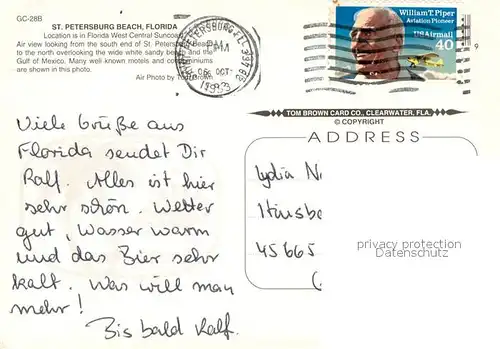 GC-28B
ST. PETERSBURG BEACH, FLORIDA
Location is in Florida West Central Suncoast
Air view looking from the south end of St. Petersburg Beach
to the north overlooking the wide white sandy beach and the
Gulf of Mexico. Many well known motels and condominiums
are shown in this photo.
Air Photo by Tom Brown
PM
OCT
1993
William T. Piper
Aviation Pioneer
US Airmail
40
TOM BROWN CARD CO., CLEARWATER, FLA.
© COPYRIGHT
ADDRESS
Viele Grüße aus
Florida sendet Dir
Ralf. Alles ist hier
sehr schön. Wetter
gut, Wasser warm
und das Bier sehr
kalt. Was will man
mehr!
Bis bald Ralf.
Lydia
45665
privacy protection
Datenschutz